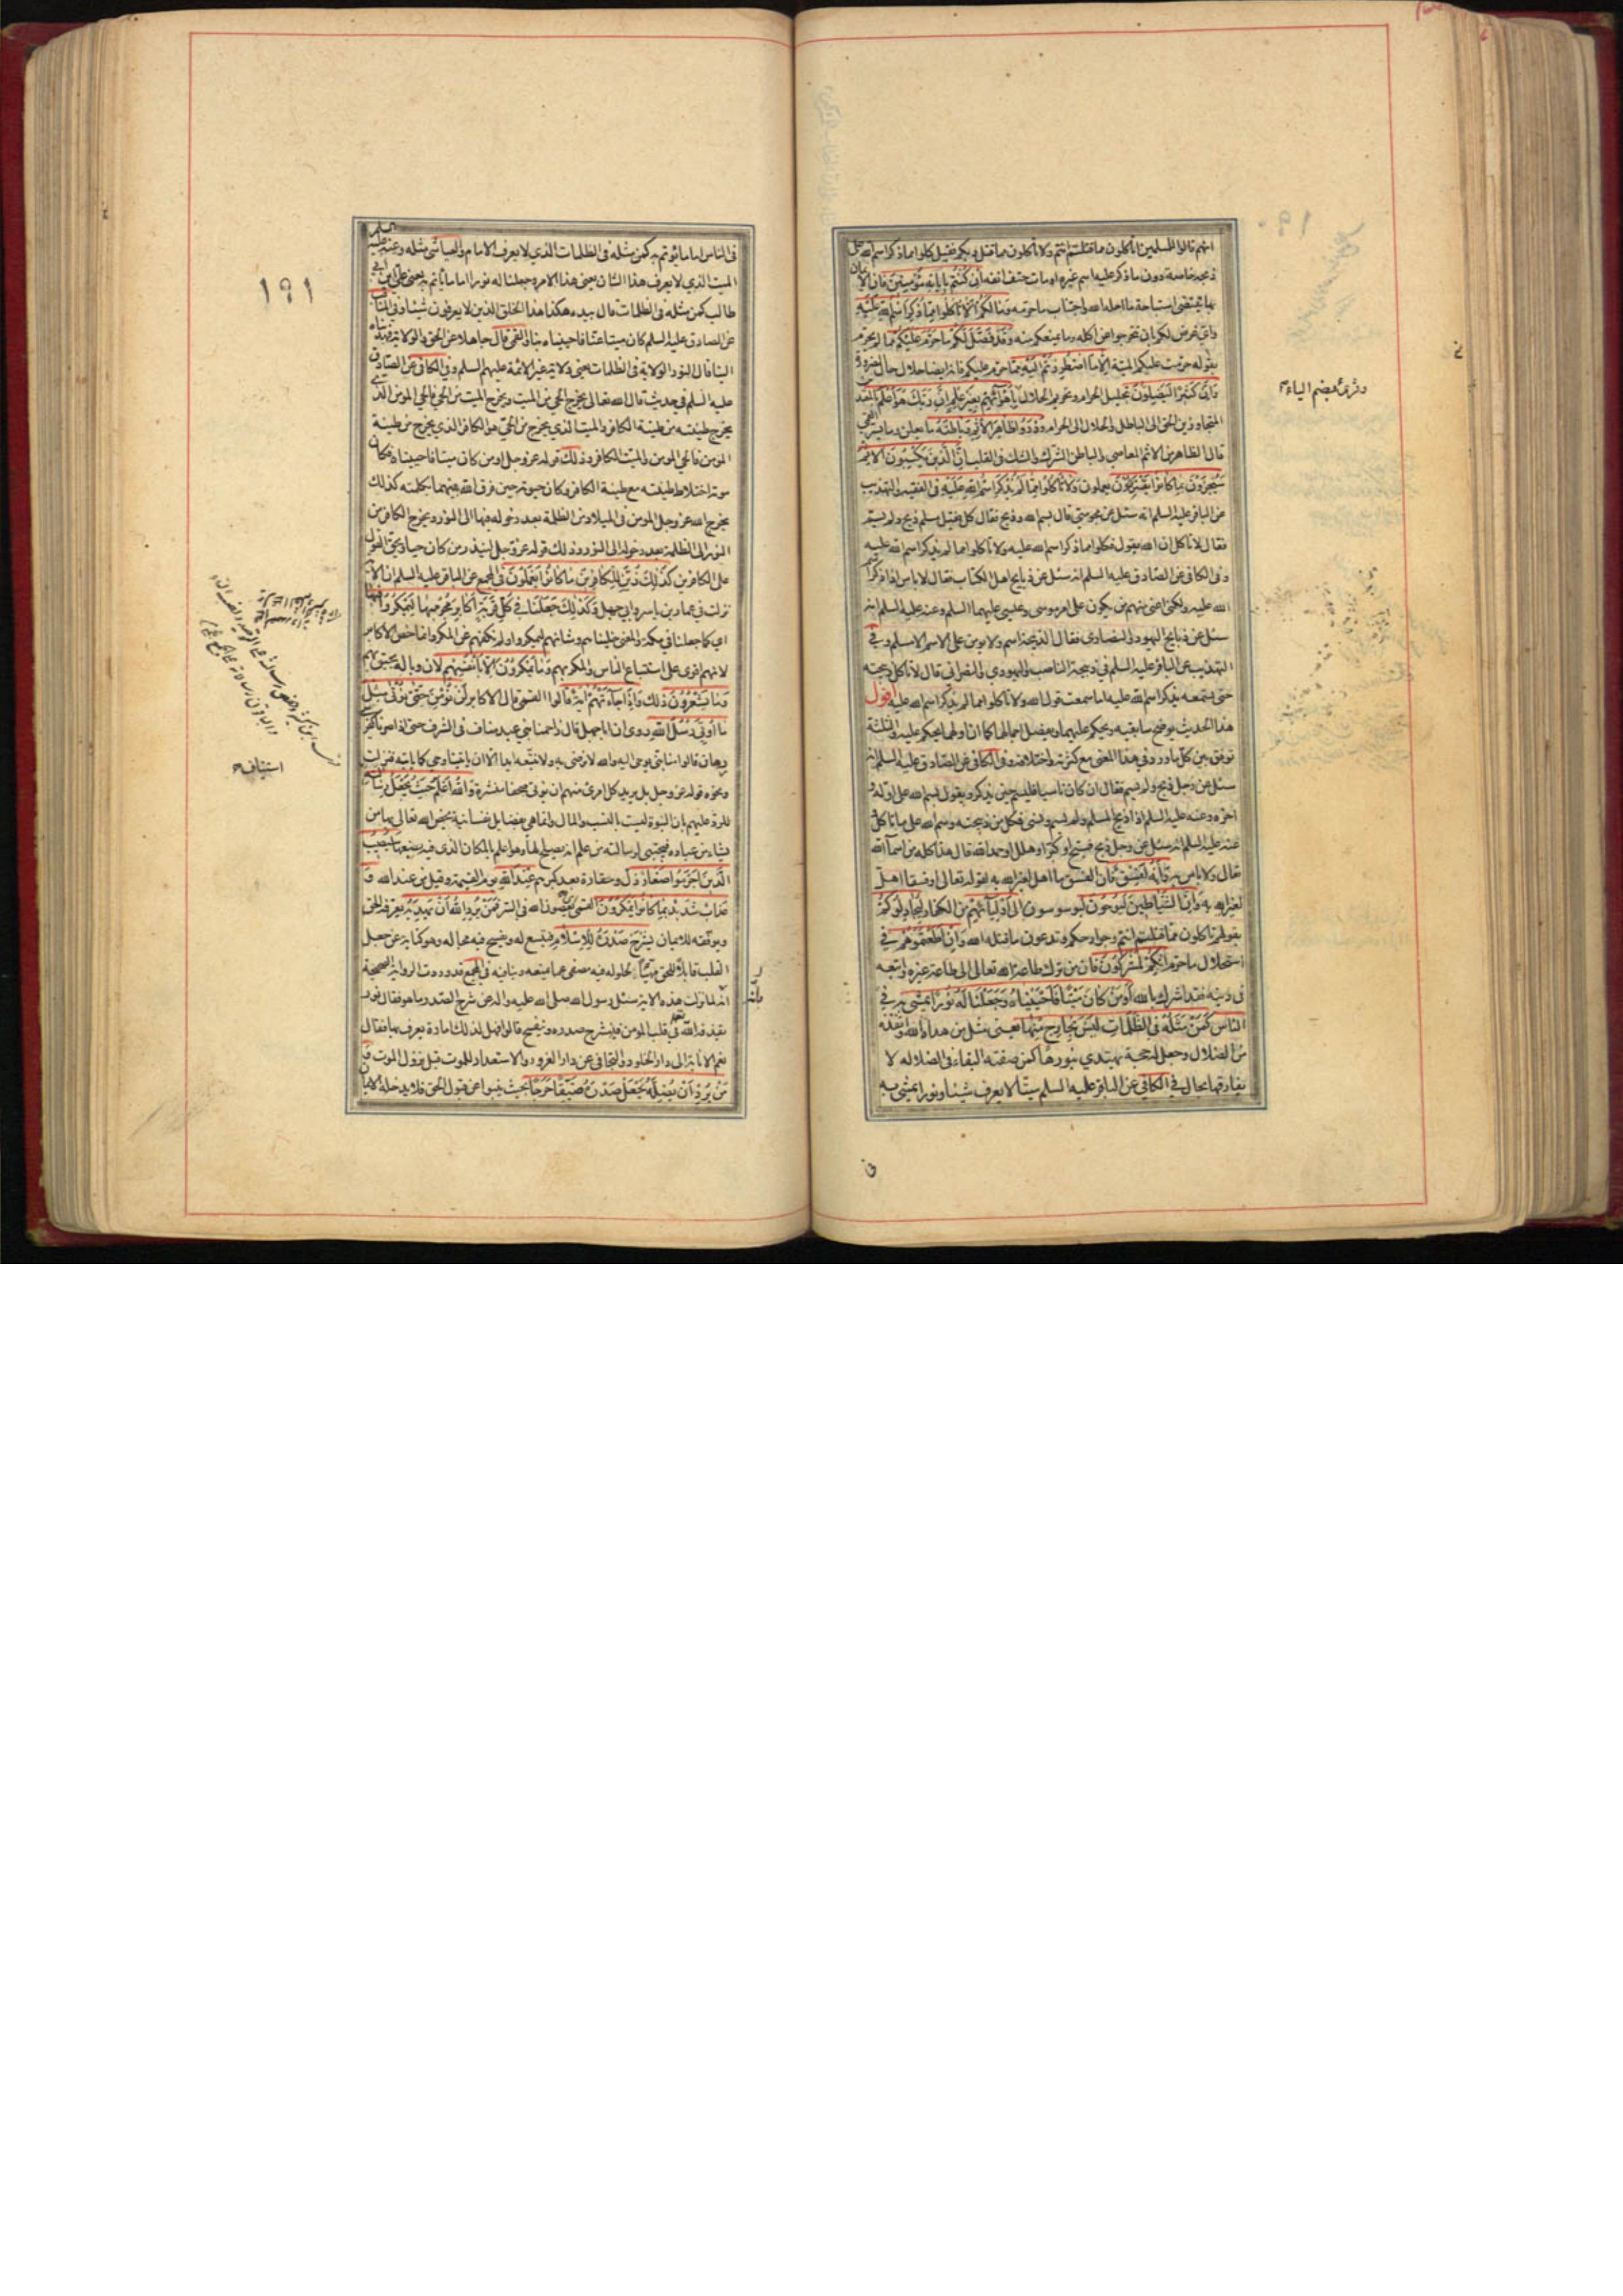 ١٩٠
انهم قالوا للمسلمين اتأكلون مما قتلتم انتم ولا تأكلون مما قتل ربكم فقيل كلوا مما ذكر اسم الله على
ذبحه خاصة دون ما ذكر عليه اسم غيره او مات حتف انفه ان كنتم باياته مؤمنين فان الايمان
بها يقتضى استباحة ما احله الله واجتناب ما حرمه وما لكم الا تأكلوا مما ذكر اسم الله عليه
واي غرض لكم في ان تتحرجوا عن اكله وما يمنعكم منه وقد فصل لكم ما حرم عليكم مما لم يحرم
بقوله حرمت عليكم الميتة الا ما اضطررتم اليه مما حرم عليكم فانه ايضا حلال حال الضرورة
وان كثيرا ليضلون بتحليل الحرام وتحريم الحلال باهوائهم بغير علم ان ربك هو اعلم بالمعتدين
المتجاوزين الحق الى الباطل والحلال الى الحرام وذروا ظاهر الاثم وباطنه ما يعلن وما يسر القمي
قال الظاهر من الاثم المعاصي والباطن الشرك والشك في القلب ان الذين يكسبون الاثم
سيجزون بما كانوا يقترفون يعملون ولا تأكلوا مما لم يذكر اسم الله عليه في الفقيه والتهذيب
عن الباقر عليه السلم انه سئل عن مجوسي قال بسم الله وذبح فقال كل فقيل مسلم ذبح ولم يسم
فقال لا تأكل ان الله يقول فكلوا مما ذكر اسم الله عليه ولا تأكلوا مما لم يذكر اسم الله عليه
وفي الكافي عن الصادق عليه السلم انه سئل عن ذبايح اهل الكتاب فقال لا باس اذا ذكروا اسم
الله عليه ولكني اعني منهم من يكون على امر موسى وعيسى عليهما السلم وعنه عليه السلم انه
سئل عن ذبايح اليهود والنصارى فقال الذبيحة اسم ولا يؤمن على الاسم الا مسلم وفي
التهذيب عن الباقر عليه السلم في ذبيحة الناصب واليهودي والنصراني قال لا تأكل ذبيحته
حتى تسمعه يذكر اسم الله عليه اما سمعت قول الله ولا تأكلوا مما لم يذكر اسم الله عليه اقول
هذا الحديث يوضح سابقيه ويحكم عليهما ويفصل اجمالهما كما ان اولهما يحكم عليه والثلثة
توفق بين كل ما ورد في هذا المعنى مع كثرته واختلافه وفي الكافي عن الصادق عليه السلم انه
سئل عن رجل ذبح ولم يسم فقال ان كان ناسيا فليسم حين يذكر ويقول بسم الله على اوله و
اخره وعنه عليه السلم اذا ذبح المسلم ولم يسم ونسي فكل من ذبيحته وسم الله على ما تأكل و
عنه عليه السلم انه سئل عن رجل ذبح فسبح او كبر او هلل او حمد الله قال هذا كله من اسماء الله
تعالى ولا باس به وانه لفسق فان الفسق ما اهل لغير الله به لقوله تعالى او فسقا اهل
لغير الله به وان الشياطين ليوحون ليوسوسون الى اوليائهم من الكفار ليجادلوكم
بقولهم تأكلون مما قتلتم انتم وجوارحكم وتدعون ما قتله الله وان اطعتموهم في
استحلال ما حرم انكم لمشركون فان من ترك طاعة الله تعالى الى طاعة غيره واتبعه
في دينه فقد اشرك بالله اومن كان ميتا فاحييناه وجعلنا له نورا يمشي به في
الناس كمن مثله في الظلمات ليس بخارج منها يعني مثل من هداه الله وانقذه
من الضلال وجعل له حجة يهتدي بنورها كمن صفته البقاء في الضلاله لا
يفارقها بحال في الكافي عن الباقر عليه السلم ميتا لا يعرف شيئا ونورا يمشي به
وقرئ بضم الياء
في
١٩١
في الناس اماما يؤتم به كمن مثله في الظلمات الذي لا يعرف الامام والعياشي مثله وعنه عليه السلم
الميت الذي لا يعرف هذا الشان يعنى هذا الامر وجعلنا له نورا اماما يأتم به يعنى علي بن ابي
طالب كمن مثله في الظلمات قال بيده هكذا هذا الخلق الذين لا يعرفون شيئا وفي المناقب
عن الصادق عليه السلم كان ميتا عنا فاحييناه بنا والقمي قال جاهلا عن الحق والولاية فهديناه
الينا قال النور الولاية في الظلمات يعني ولاية غير الائمة عليهم السلم وفي الكافي عن الصادق
عليه السلم في حديث قال الله تعالى يخرج الحي من الميت ويخرج الميت من الحي فالحي المؤمن الذي
يخرج طينته من طينة الكافر والميت الذي يخرج من الحي هو الكافر الذي يخرج من طينة
المؤمن فالحي المؤمن والميت الكافر وذلك قوله عز وجل اومن كان ميتا فاحييناه فكان
موته اختلاط طينته مع طينة الكافر وكان حيوته حين فرق الله بينهما بكلمته كذلك
يخرج الله عز وجل المؤمن في الميلاد من الظلمة بعد دخوله فيها الى النور ويخرج الكافر من
النور الى الظلمة بعد دخوله الى النور وذلك قوله عز وجل لينذر من كان حيا ويحق القول
على الكافرين كذلك زين للكافرين ما كانوا يعملون في المجمع عن الباقر عليه السلم ان الاية
نزلت في عمار بن ياسر وابي جهل وكذلك جعلنا في كل قرية اكابر مجرميها ليمكروا فيها
اي كما جعلنا في مكة والمعنى خليناهم وشانهم ليمكروا ولم نكفهم عن المكر وانما خص الاكابر
لانهم اقوى على استتباع الناس والمكر بهم وما يمكرون الا بانفسهم لان وباله يحيق بهم
وما يشعرون ذلك واذا جاءتهم اية قالوا القمي قال الاكابر لن نؤمن حتى نؤتى مثل
ما اوتي رسل الله روى ان اباجهل قال زاحمنا بني عبد مناف في الشرف حتى اذا صرنا كفرسي
رهان قالوا منا نبي يوحى اليه والله لا نرضى به ولا نتبعه ابدا الا ان ياتينا وحي كما ياتيه فنزلت
ونحوه قوله عز وجل بل يريد كل امرئ منهم ان يؤتى صحفا منشرة والله اعلم حيث يجعل رسالته
للرد عليهم بان النبوة ليست بالنسب والمال وانما هي بفضايل نفسانية يخص الله تعالى بها من
يشاء من عباده فيجتبي لرسالته من علم انه يصلح لها وهو اعلم بالمكان الذي فيه يضعها سيصيب
الذين اجرموا صغار ذل وحقارة بعد كبرهم عند الله يوم القيمة وقيل من عند الله و
عذاب شديد بما كانوا يمكرون القمي يعصون الله في السر فمن يرد الله ان يهديه يعرفه الحق
ويوفقه للايمان يشرح صدره للاسلام فيتسع له ويفسح فيه مجاله وهو كناية عن جعل
القلب قابلا للحق مهيئا لحلوله فيه مصفى عما يمنعه وينافيه في المجمع قد وردت الرواية الصحيحة
انه لما نزلت هذه الاية سئل رسول الله صلى الله عليه واله عن شرح الصدر ما هو فقال نور
يقذفه الله في قلب المؤمن فينشرح صدره وينفسح قالوا فهل لذلك امارة يعرف بها فقال
نعم الانابة الى دار الخلود والتجافي عن دار الغرور والاستعداد للموت قبل نزول الموت و
من يرد ان يضله يجعل صدره ضيقا حرجا بحيث ينبوا عن قبول الحق فلا يدخله الايمان
استيناف